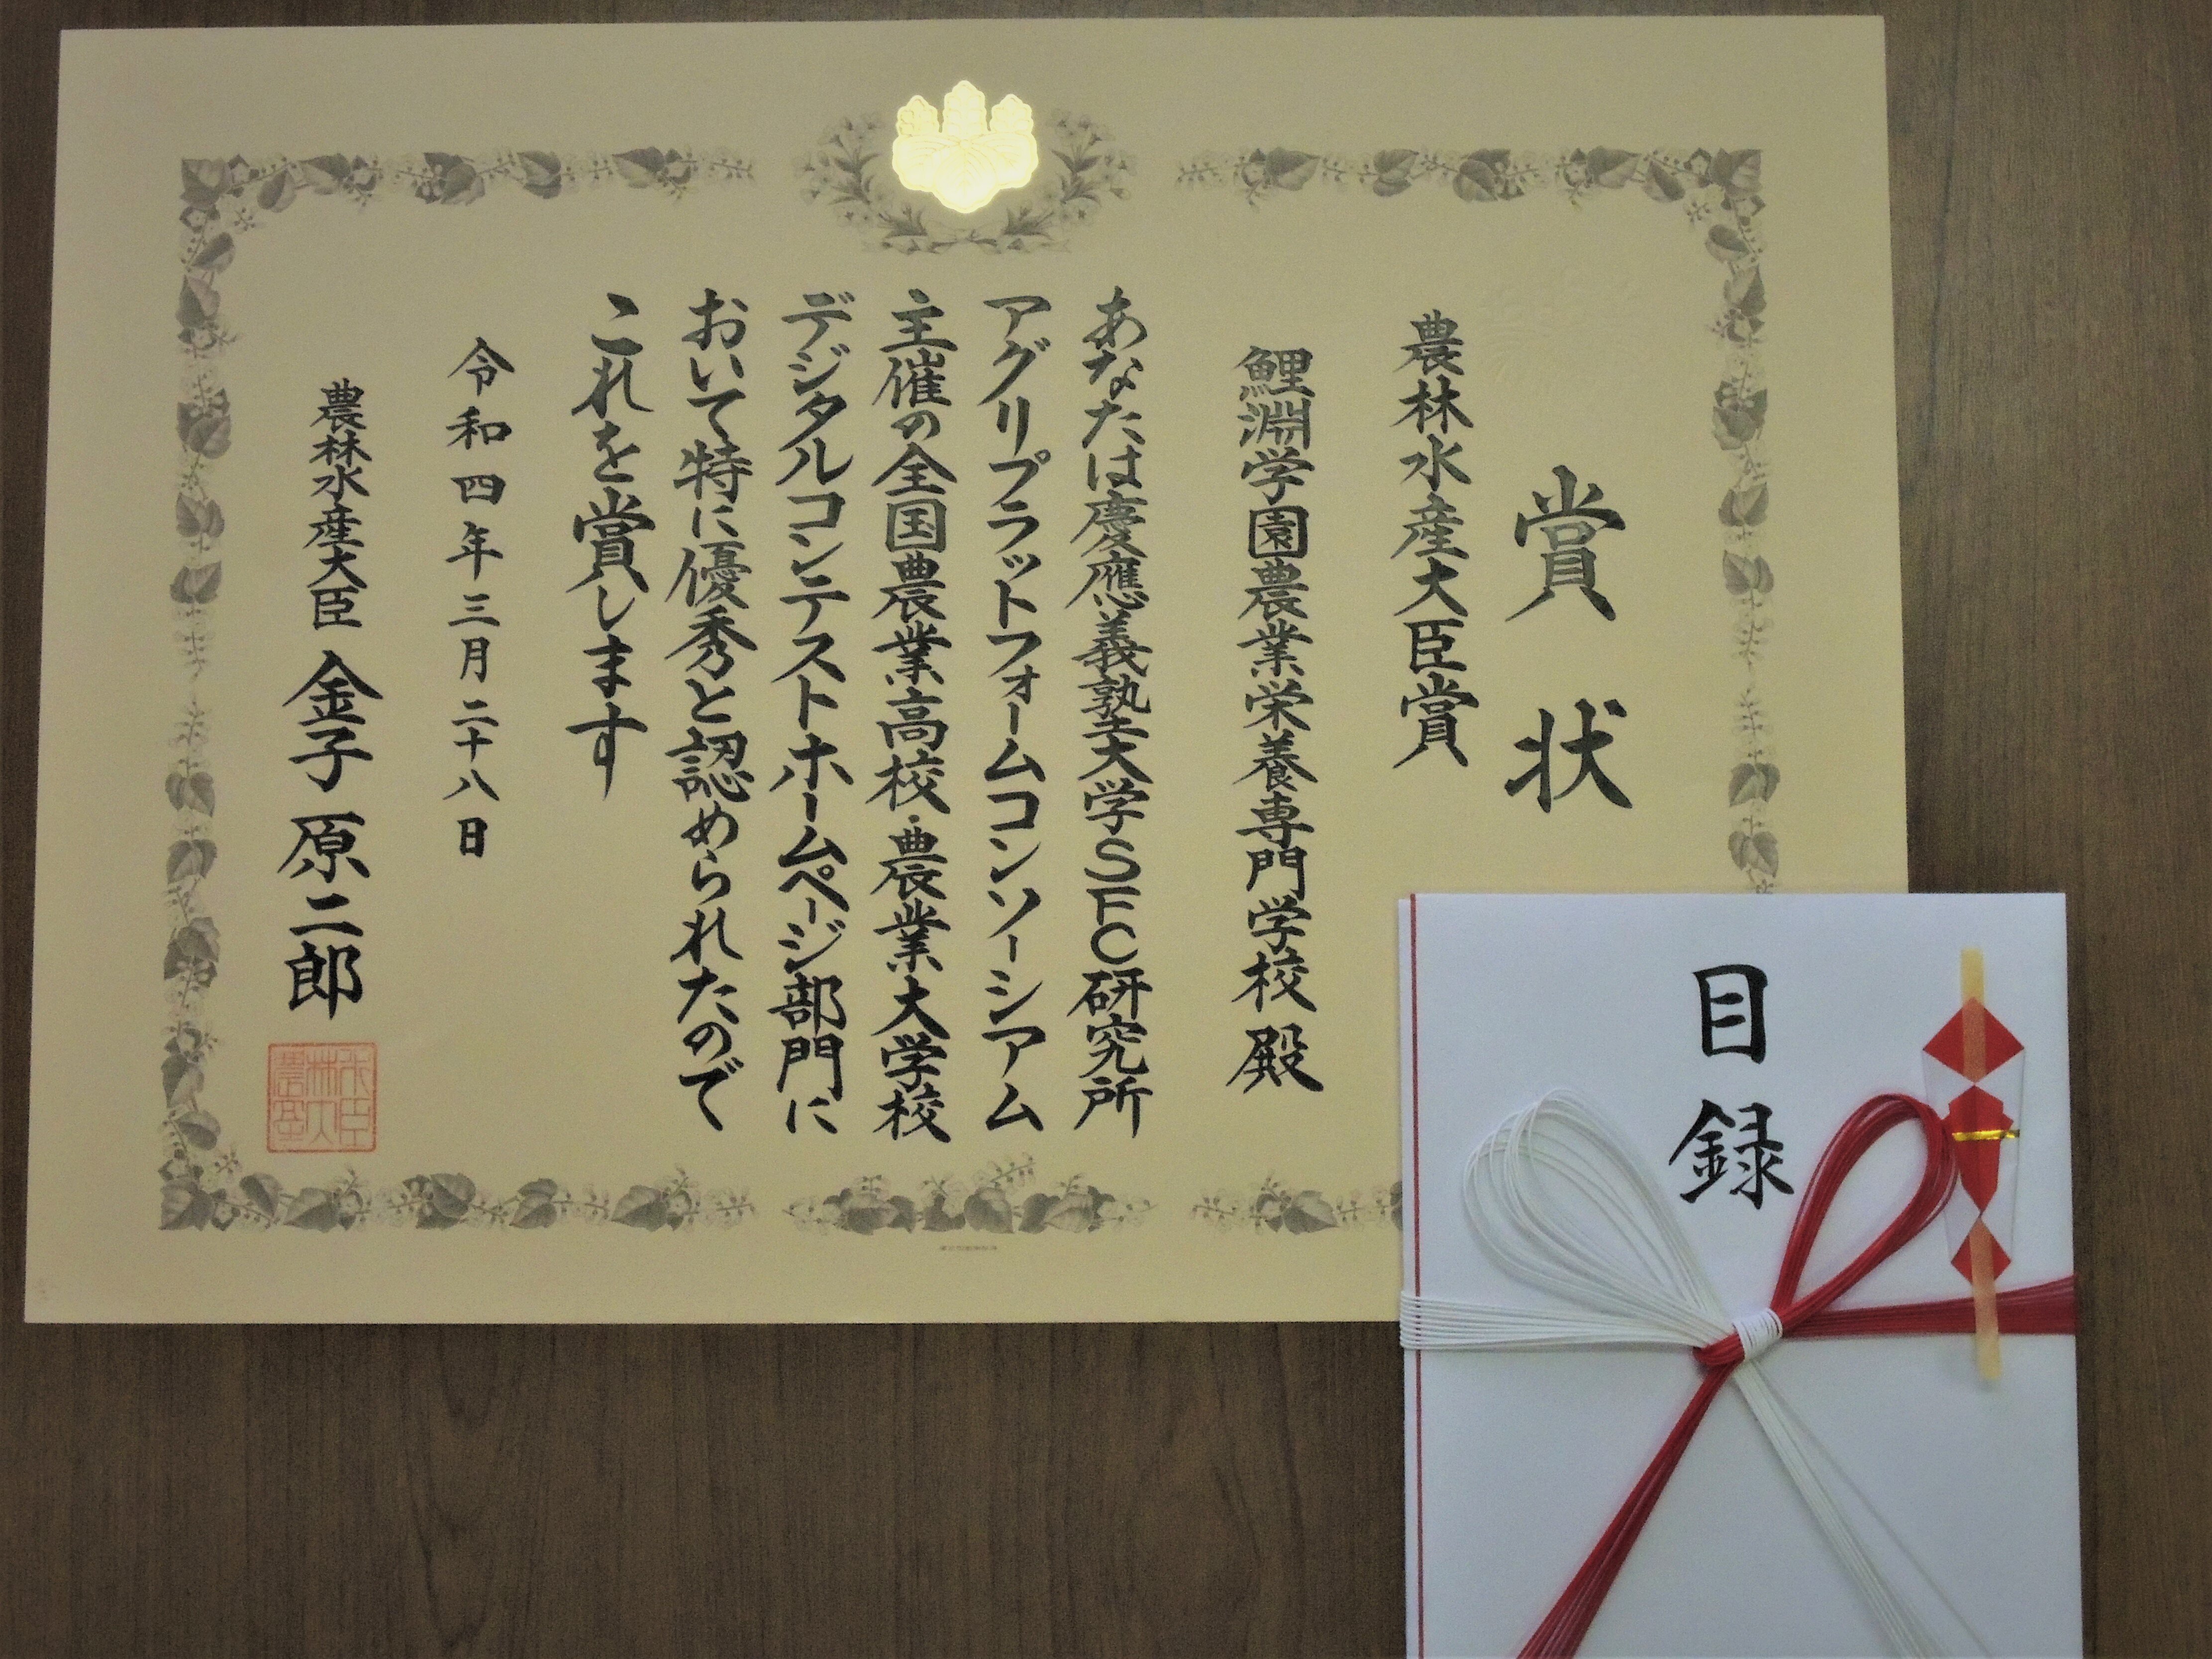 賞状
農林水産大臣賞
鯉淵学園農業栄養専門学校 殿
あなたは慶應義塾大学SFC研究所
アグリプラットフォームコンソーシアム
主催の全国農業高校・農業大学校
デジタルコンテストホームページ部門に
おいて特に優秀と認められたので
これを賞します
令和四年三月二十八日
農林水産大臣 金子原二郎
目録